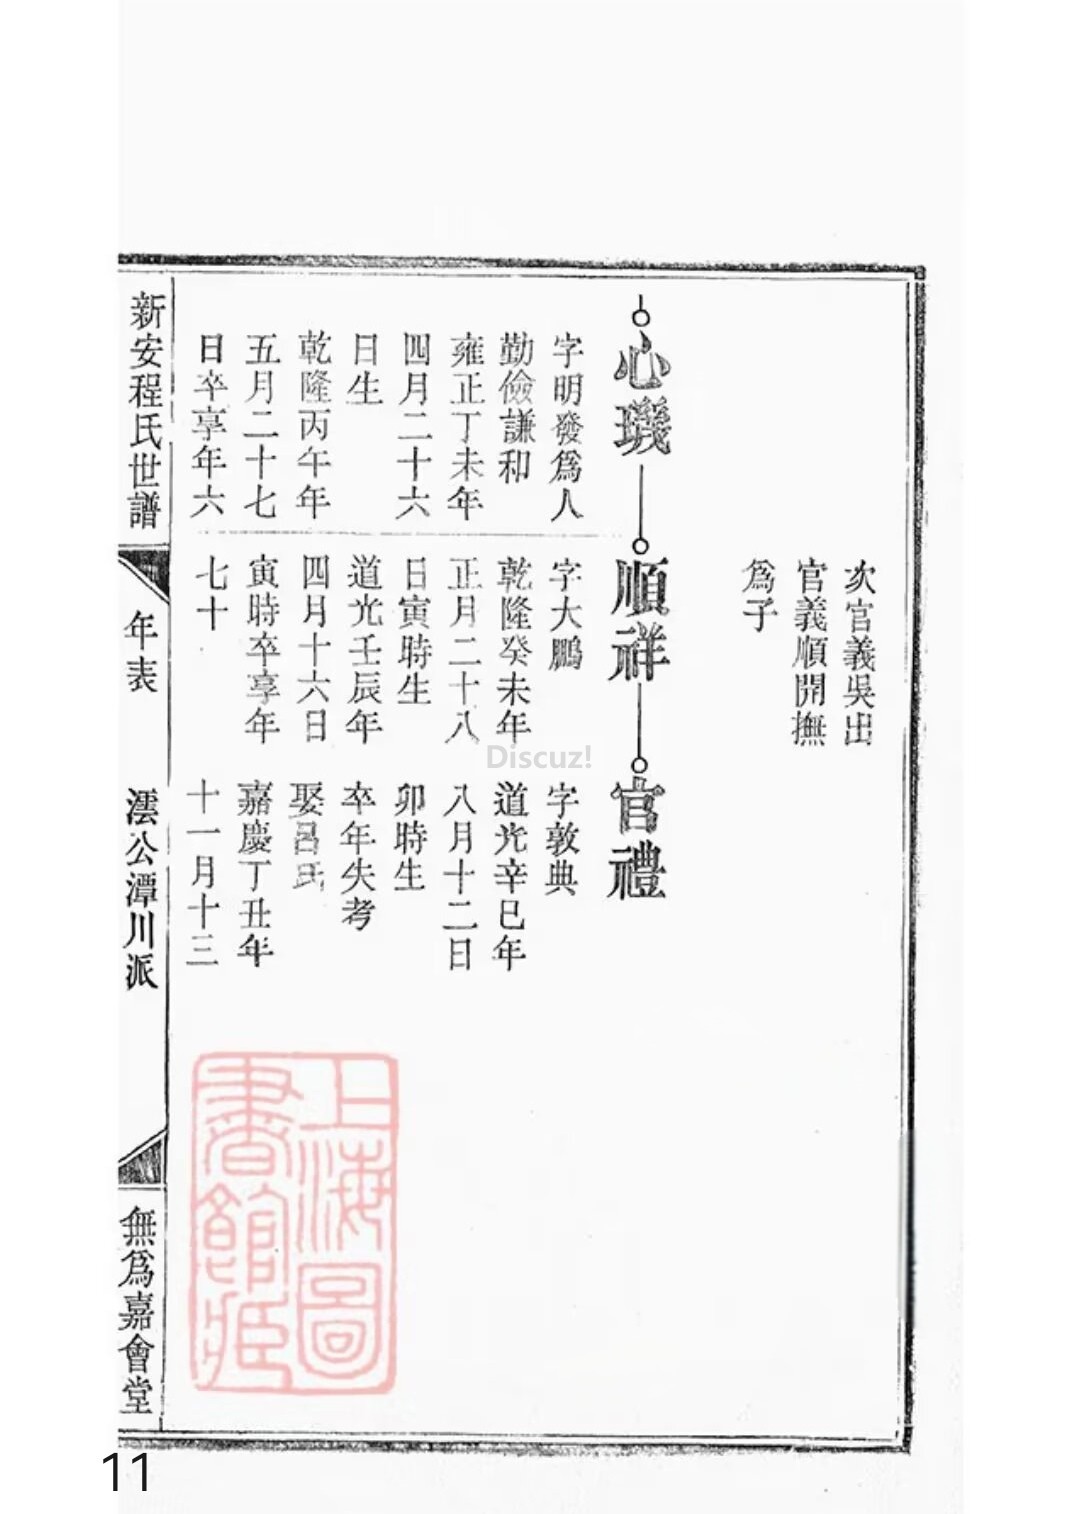 次官義吳出
官義順開撫
爲子
心璣
字明發爲人
勤儉謙和
雍正丁未年
四月二十六
日生
乾隆丙午年
五月二十七
日卒享年六
順祥
字大鵬
乾隆癸未年
正月二十八
日寅時生
道光壬辰年
四月十六日
寅時卒享年
七十
官禮
字敦典
道光辛巳年
八月十二日
卯時生
卒年失考
娶呂氏
嘉慶丁丑年
十一月十三
新安程氏世譜
年表
澐公潭川派
無爲嘉會堂
上海圖
書館藏
Discuz!
11